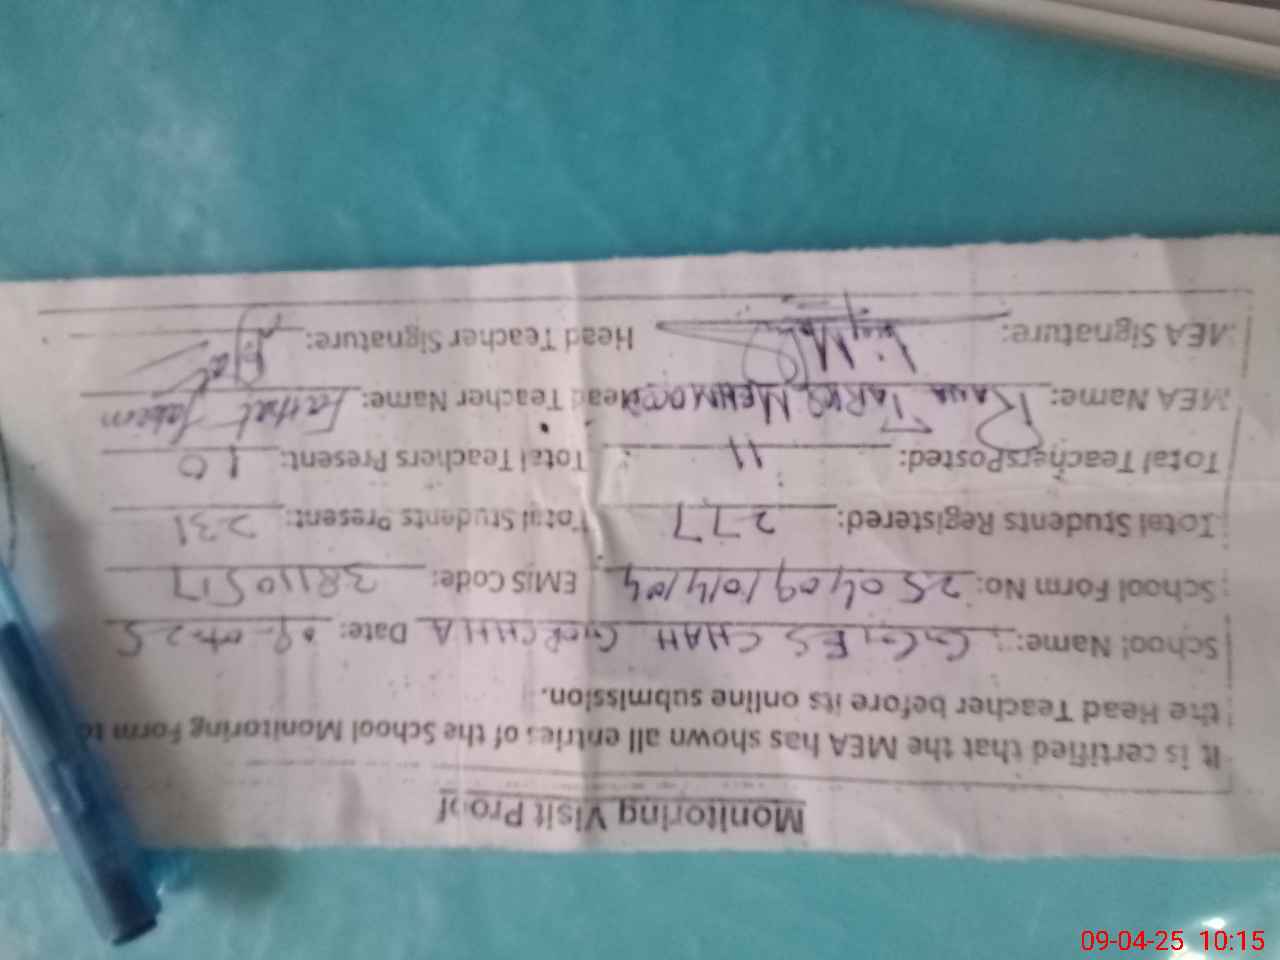 Monitoring Visit Proof
It is certified that the MEA has shown all entries of the School Monitoring Form to
the Head Teacher before its online submission.
School Name: GGES CHAH GORCHHA Date: 09-04-25
School Form No: 25040910414104 EMIS Code: 38110517
Total Students Registered: 277 Total Students Present: 231
Total Teachers Posted: 11 Total Teachers Present: 10
MEA Name: RANA TARIQ MEHMOOD Head Teacher Name:
MEA Signature: Head Teacher Signature:
09-04-25 10:15